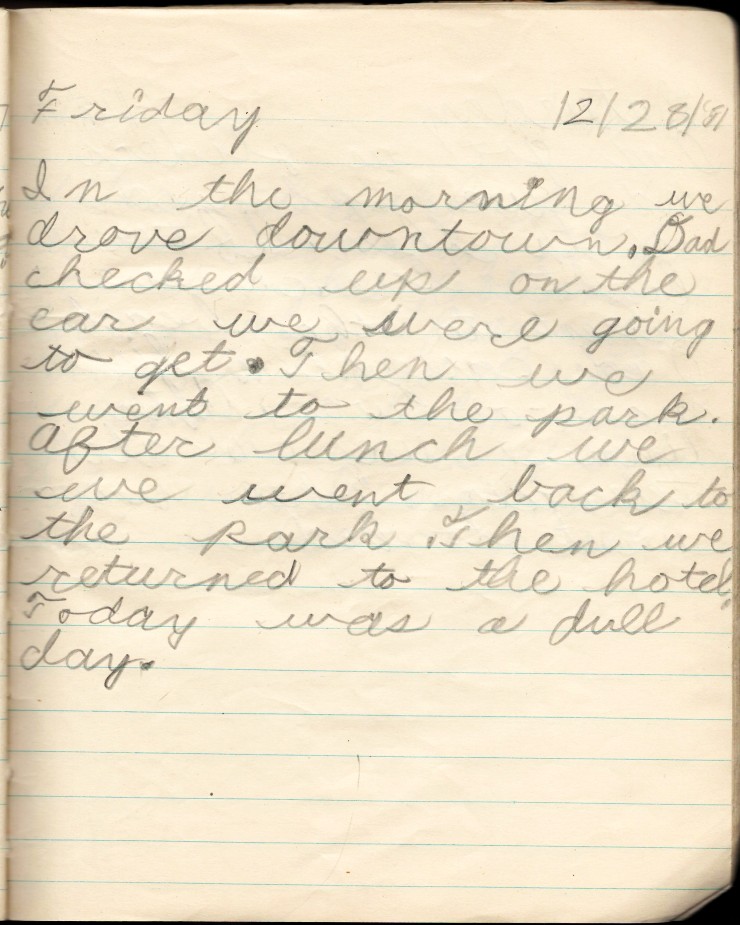 Friday 12/28/81
In the morning we
drove downtown. Dad
checked up on the
car we were going
to get. Then we
went to the park.
After lunch we
we went back to
the park. Then we
returned to the hotel.
Today was a dull
day.